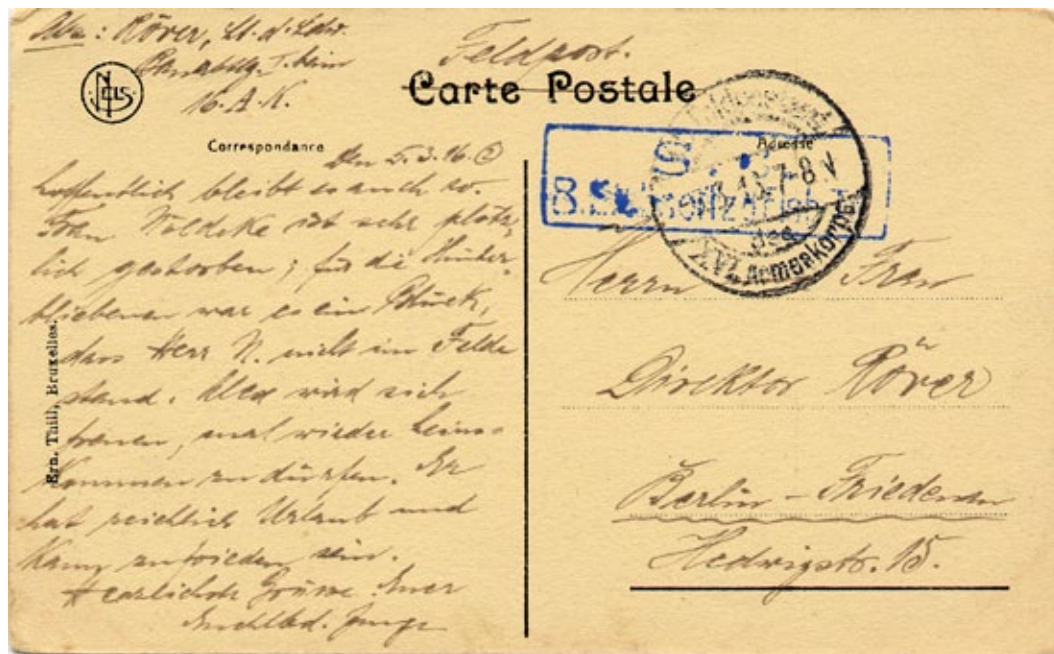 Abs: Röver, Lt. d. Ldw.
16. A. K.
Feldpost.
NELS
Carte Postale
Correspondance
Adresse
Den 5.3.16.
Hoffentlich bleibt es auch so.
Frau Nöldeke ist sehr plötz-
lich gestorben; für die Hinter-
bliebenen war es ein Glück,
dass Herr N. nicht im Felde
stand. Alex wird sich
freuen, mal wieder heim-
kommen zu dürfen. Er
hat reichlich Urlaub und
kann zufrieden sein.
Herzlichste Grüsse Euer
Junge
Ern. Thill, Bruxelles.
S.
B.
7-8 V
des
XVI. Armeekorps
Herrn Frau
Direktor Röver
Berlin - Friedenau
Hedwigstr. 15.